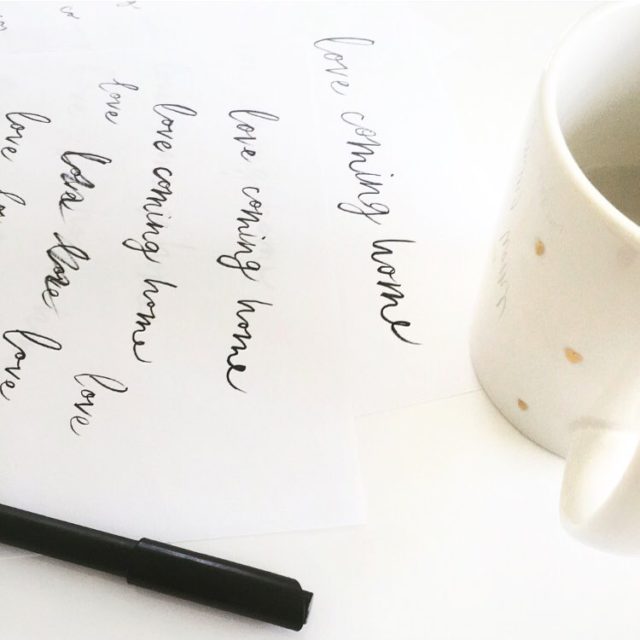 love coming home
love coming home
love coming home
love
love
love
love
love